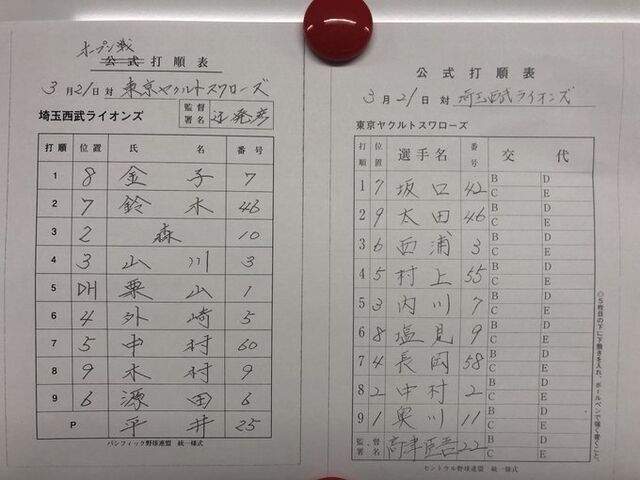 オープン戦
公式打順表
3月21日対 東京ヤクルトスワローズ
埼玉西武ライオンズ 監督署名 辻発彦
打順 位置 氏名 番号
1 8 金子 7
2 7 鈴木 46
3 2 森 10
4 3 山川 3
5 DH 栗山 1
6 4 外崎 5
7 5 中村 60
8 9 木村 9
9 6 源田 6
P 平井 25
パシフィック野球連盟 統一様式
公式打順表
3月21日対 埼玉西武ライオンズ
東京ヤクルトスワローズ
打順 位置 選手名 番号 交代
1 7 坂口 42 B D C E
2 9 太田 46 B D C E
3 6 西浦 3 B D C E
4 5 村上 55 B D C E
5 3 内川 7 B D C E
6 8 塩見 9 B D C E
7 4 長岡 58 B D C E
8 2 中村 2 B D C E
9 1 奥川 11 B D C E
監督署名 高津臣吾 22 B D C E
セントラル野球連盟 統一様式
◎5枚目の下に下敷きを入れ、ボールペンで強く書くこと。